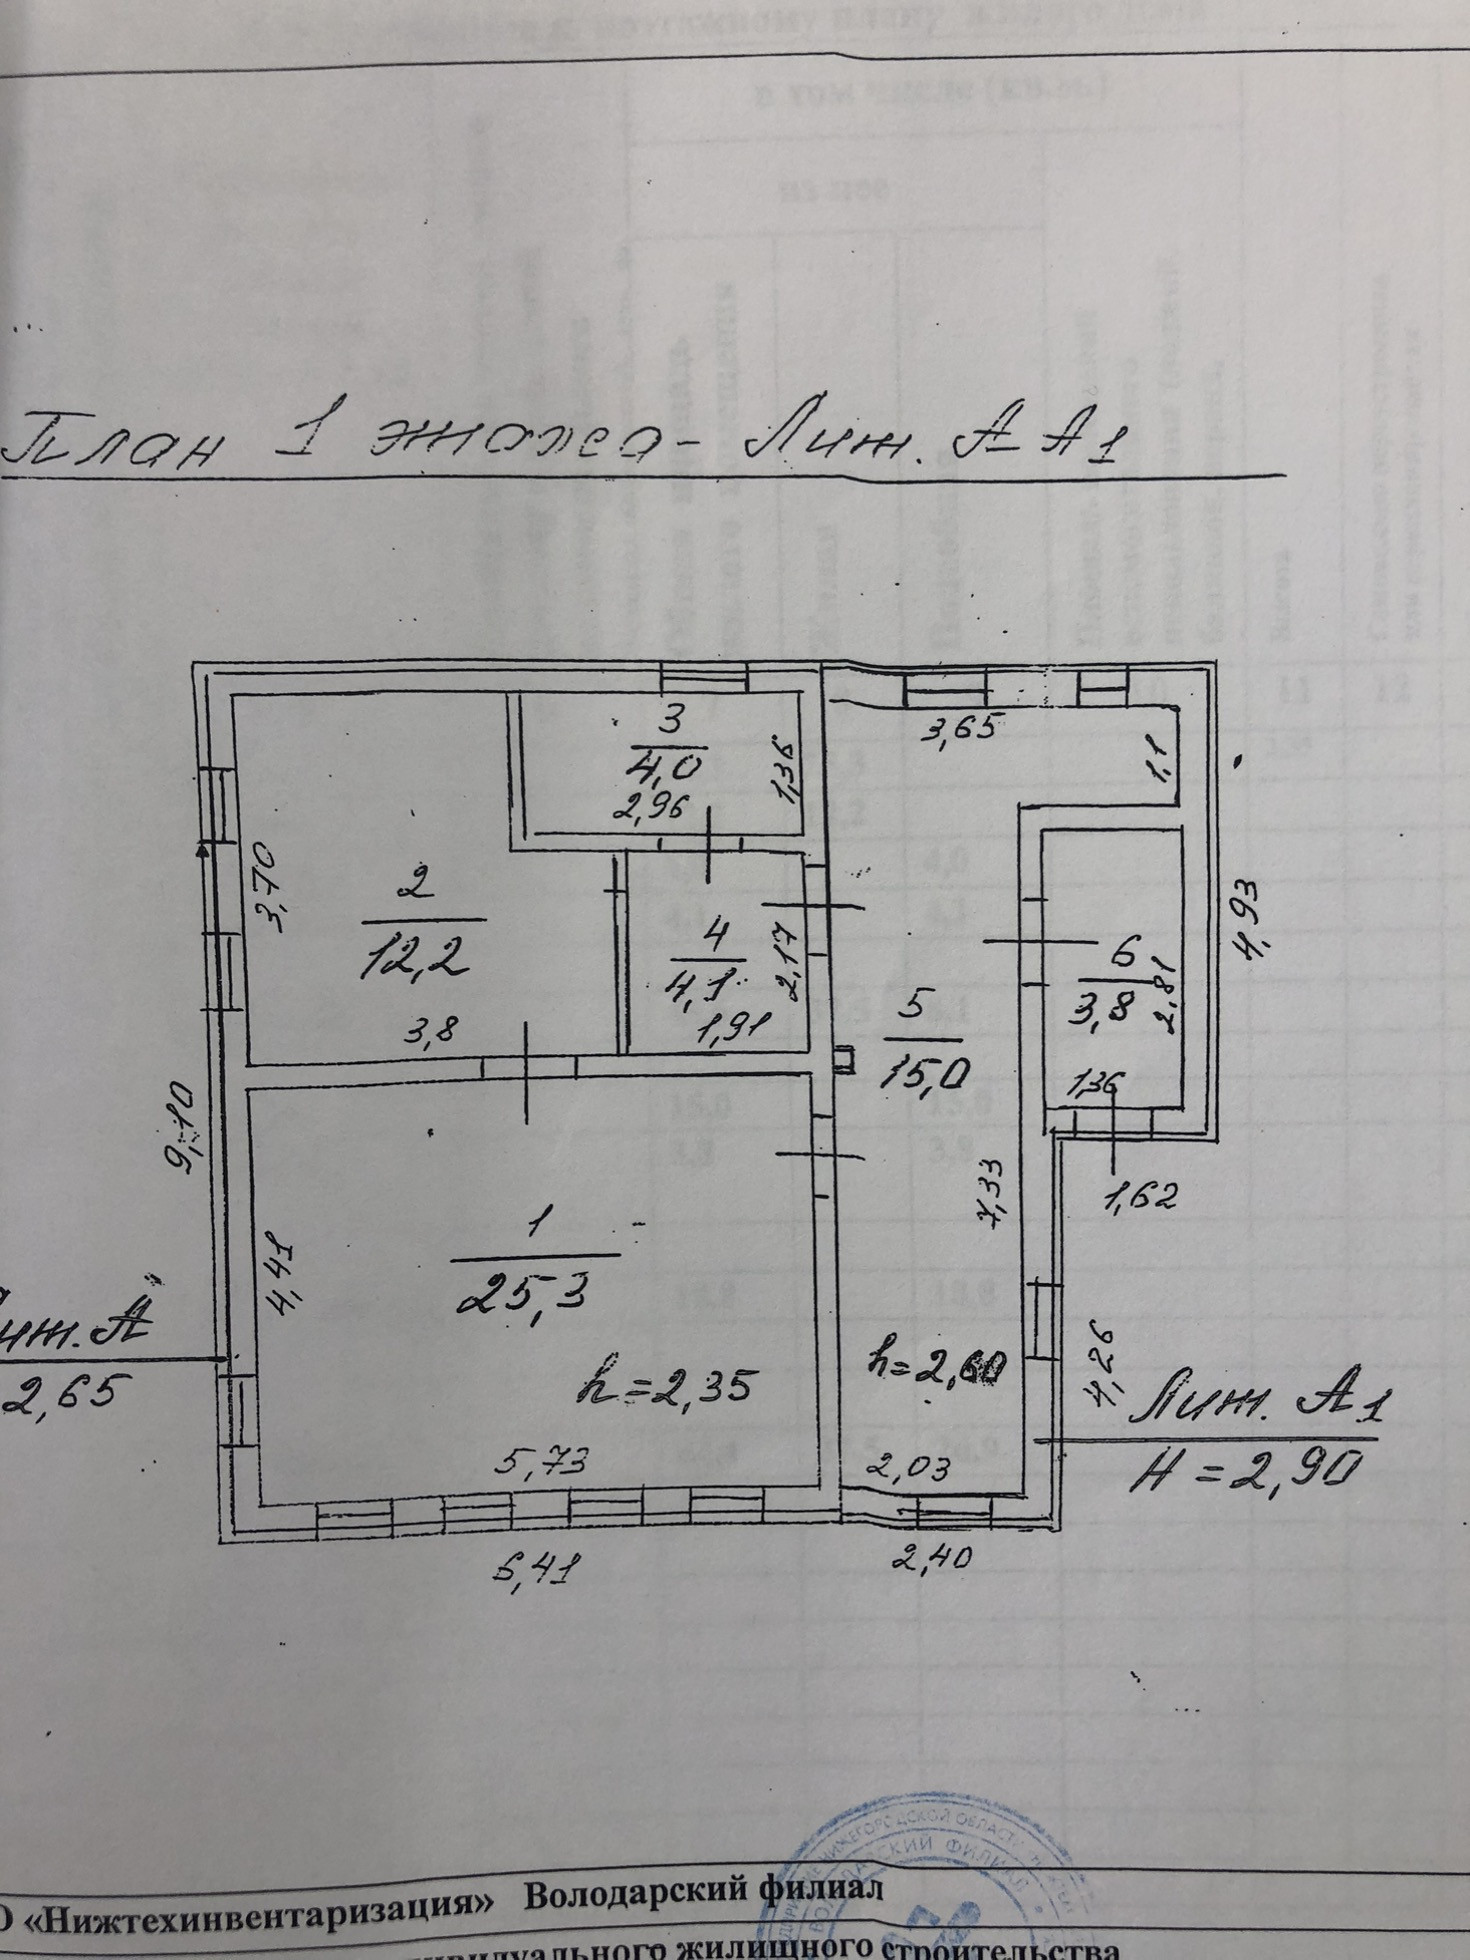 План 1 этажа - Лит. А-А1
3,65
3
4,0
2,96
1,36
1,1
3,70
2
12,2
3,8
4
4,1
2,17
1,91
5
15,0
6
3,8
2,81
1,36
4,93
9,10
7,33
1,62
1
25,3
4,41
h=2,35
h=2,60
4,26
Лит. А
2,65
Лит. А1
Н=2,90
5,73
2,03
6,41
2,40
НИЖЕГОРОДСКОЙ ОБЛАСТИ
ВОЛОДАРСКИЙ ФИЛИАЛ
О «Нижтехинвентаризация» Володарский филиал
ивидуального жилищного строительства